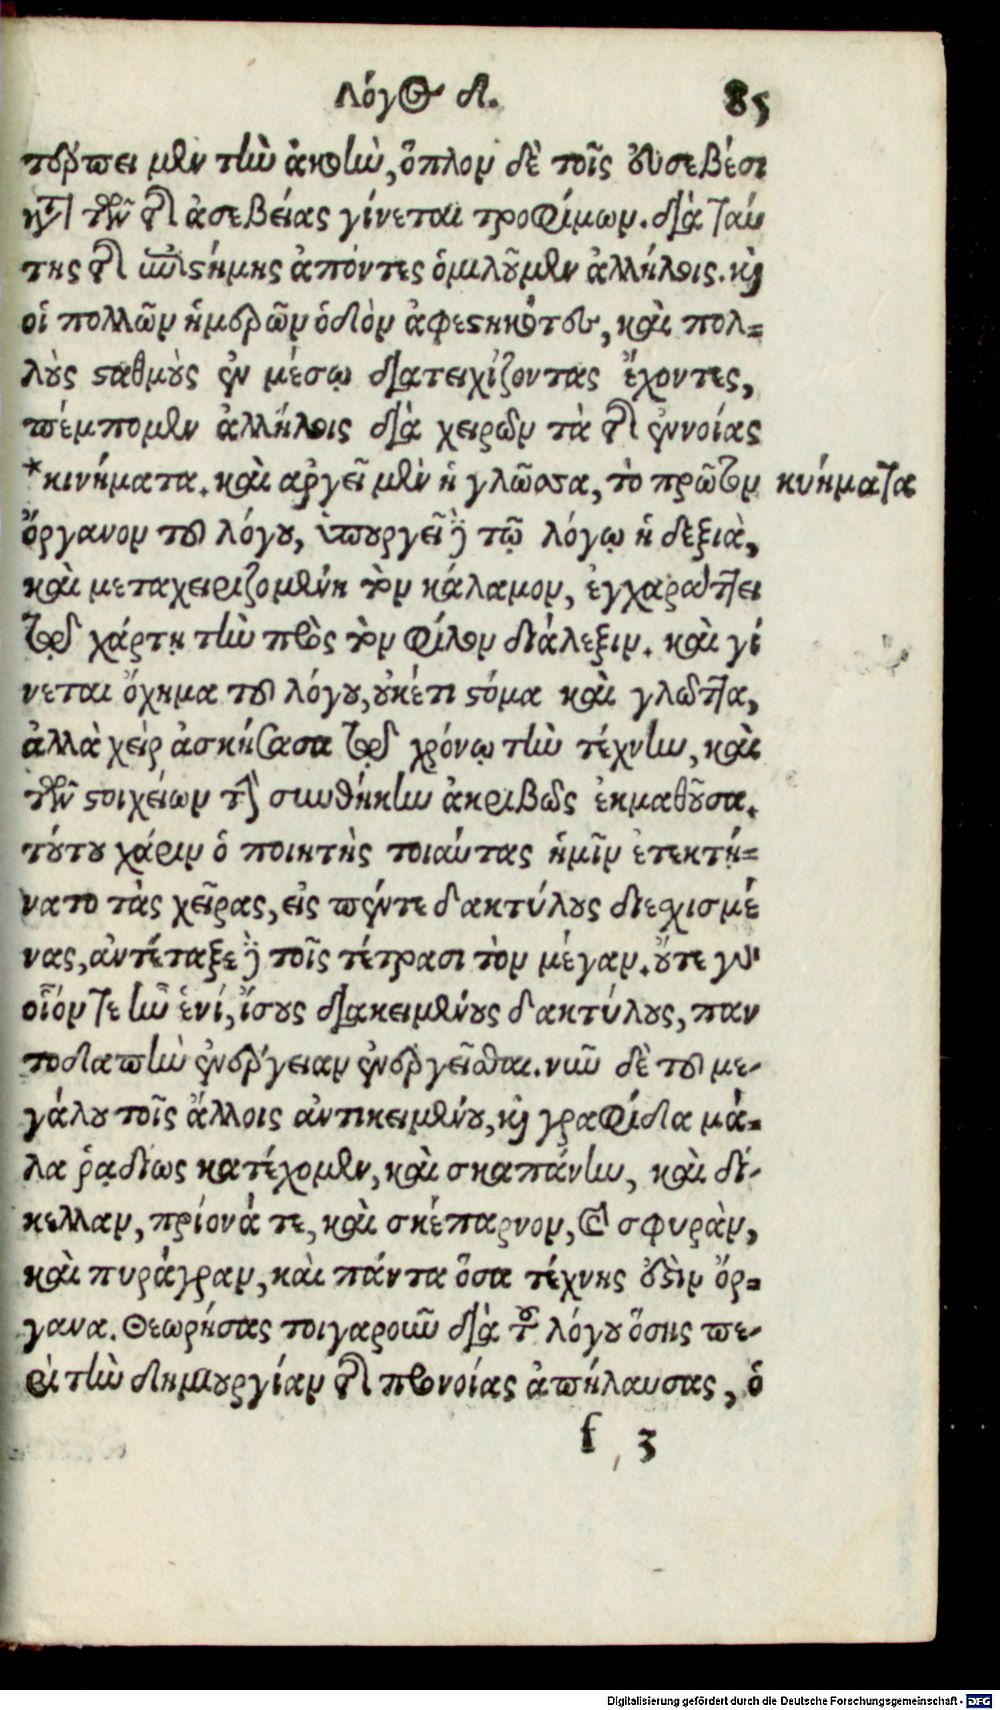 Λόγος δ. 85
τέρπει μὲν τὴν ἀκοὴν, ὅπλον δὲ τοῖς εὐσεβέσι
κατὰ τῶν τῆς ἀσεβείας γίνεται τροφίμων. διὰ ταύ
της τῆς ἐπιστήμης ἀπόντες ὁμιλοῦμεν ἀλλήλοις. καὶ
οἱ πολλῶν ἡμερῶν ὁδὸν ἀφεστηκότες, καὶ πολ=
λοὺς σταθμοὺς ἐν μέσῳ διατειχίζοντας ἔχοντες,
πέμπομεν ἀλλήλοις διὰ χειρῶν τὰ τῆς ἐννοίας
*κινήματα. καὶ ἀργεῖ μὲν ἡ γλῶσσα, τὸ πρῶτον κυήματα
ὄργανον τοῦ λόγου, ὑπουργεῖ δὲ τῷ λόγῳ ἡ δεξιὰ,
καὶ μεταχειριζομένη τὸν κάλαμον, ἐγχαράττει
τῷ χάρτῃ τὴν πρὸς τὸν φίλον διάλεξιν. καὶ γί
νεται ὄχημα τοῦ λόγου, οὐκέτι στόμα καὶ γλῶττα,
ἀλλὰ χεὶρ ἀσκήσασα τῷ χρόνῳ τὴν τέχνην, καὶ
τῶν στοιχείων τὴν συνθήκην ἀκριβῶς ἐκμαθοῦσα.
τούτου χάριν ὁ ποιητὴς τοιαύτας ἡμῖν ἐτεκτή=
νατο τὰς χεῖρας, εἰς πέντε δακτύλους διεχισμέ
νας, ἀντέταξε δὲ τοῖς τέτρασι τὸν μέγαν. οὔτε γὰρ
οἷόν τε ἦν ἑνί, ἴσους διακειμένους δακτύλους, παν
τοδαπὴν ἐνέργειαν ἐνεργεῖσθαι. νῦν δὲ τοῦ με-
γάλου τοῖς ἄλλοις ἀντικειμένου, καὶ γραφίδα μά=
λα ῥαδίως κατέχομεν, καὶ σκαπάνην, καὶ δί-
κελλαν, πρίονά τε, καὶ σκέπαρνον, καὶ σφυρὰν,
καὶ πυράγραν, καὶ πάντα ὅσα τέχνης ἐστὶν ὄρ=
γανα. Θεωρήσας τοιγαροῦν διὰ τοῦ λόγου ὅσης πε-
ρὶ τὴν δημιουργίαν τῆς προνοίας ἀπήλαυσας, ὁ
f 3
Digitalisierung gefördert durch die Deutsche Forschungsgemeinschaft - DFG